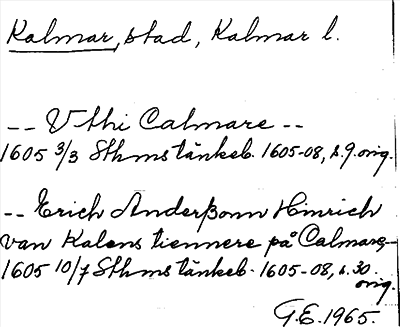 Kalmar, stad, Kalmar l.
-- Vthi Calmare --
1605 3/3 Sthms tänkeb. 1605-08, s.9. orig.
-- Erich Anderßonn Hinrich
van Kalens tiennere på Calmare,--
1605 10/7 Sthms tänkeb. 1605-08, s.30.
orig.
G.E. 1965.